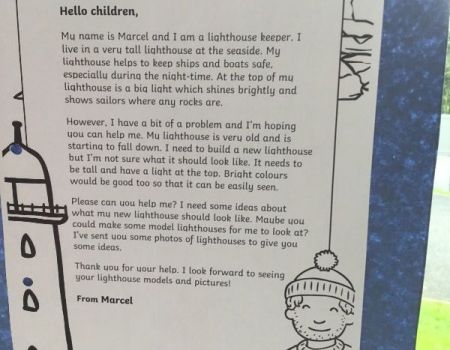 Hello children,
My name is Marcel and I am a lighthouse keeper. I
live in a very tall lighthouse at the seaside. My
lighthouse helps to keep ships and boats safe,
especially during the night-time. At the top of my
lighthouse is a big light which shines brightly and
shows sailors where any rocks are.
However, I have a bit of a problem and I'm hoping
you can help me. My lighthouse is very old and is
starting to fall down. I need to build a new lighthouse
but I'm not sure what it should look like. It needs to
be tall and have a light at the top. Bright colours
would be good too so that it can be easily seen.
Please can you help me? I need some ideas about
what my new lighthouse should look like. Maybe you
could make some model lighthouses for me to look at?
I've sent you some photos of lighthouses to give you
some ideas.
Thank you for your help. I look forward to seeing
your lighthouse models and pictures!
From Marcel